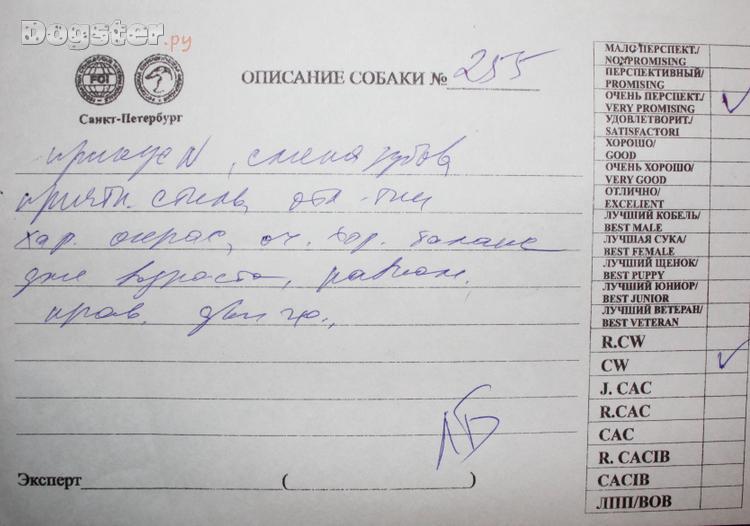 Dogster.ру
FCI
Санкт-Петербург
ОПИСАНИЕ СОБАКИ № 255
прикус N, смена зубов
приятн. стиль,
хар. окрас, оч. хор. баланс
для возраста, равном.
прав. движ.,
Эксперт ( )
МАЛО ПЕРСПЕКТ./
NOXPROMISING
ПЕРСПЕКТИВНЫЙ/
PROMISING
ОЧЕНЬ ПЕРСПЕКТ./
VERY PROMISING
УДОВЛЕТВОРИТ./
SATISFACTORI
ХОРОШО/
GOOD
ОЧЕНЬ ХОРОШО/
VERY GOOD
ОТЛИЧНО/
EXCELIENT
ЛУЧШИЙ КОБЕЛЬ/
BEST MALE
ЛУЧШАЯ СУКА/
BEST FEMALE
ЛУЧШИЙ ЩЕНОК/
BEST PUPPY
ЛУЧШИЙ ЮНИОР/
BEST JUNIOR
ЛУЧШИЙ ВЕТЕРАН/
BEST VETERAN
R.CW
CW
J. CAC
R.CAC
CAC
R. CACIB
CACIB
ЛПП/BOB